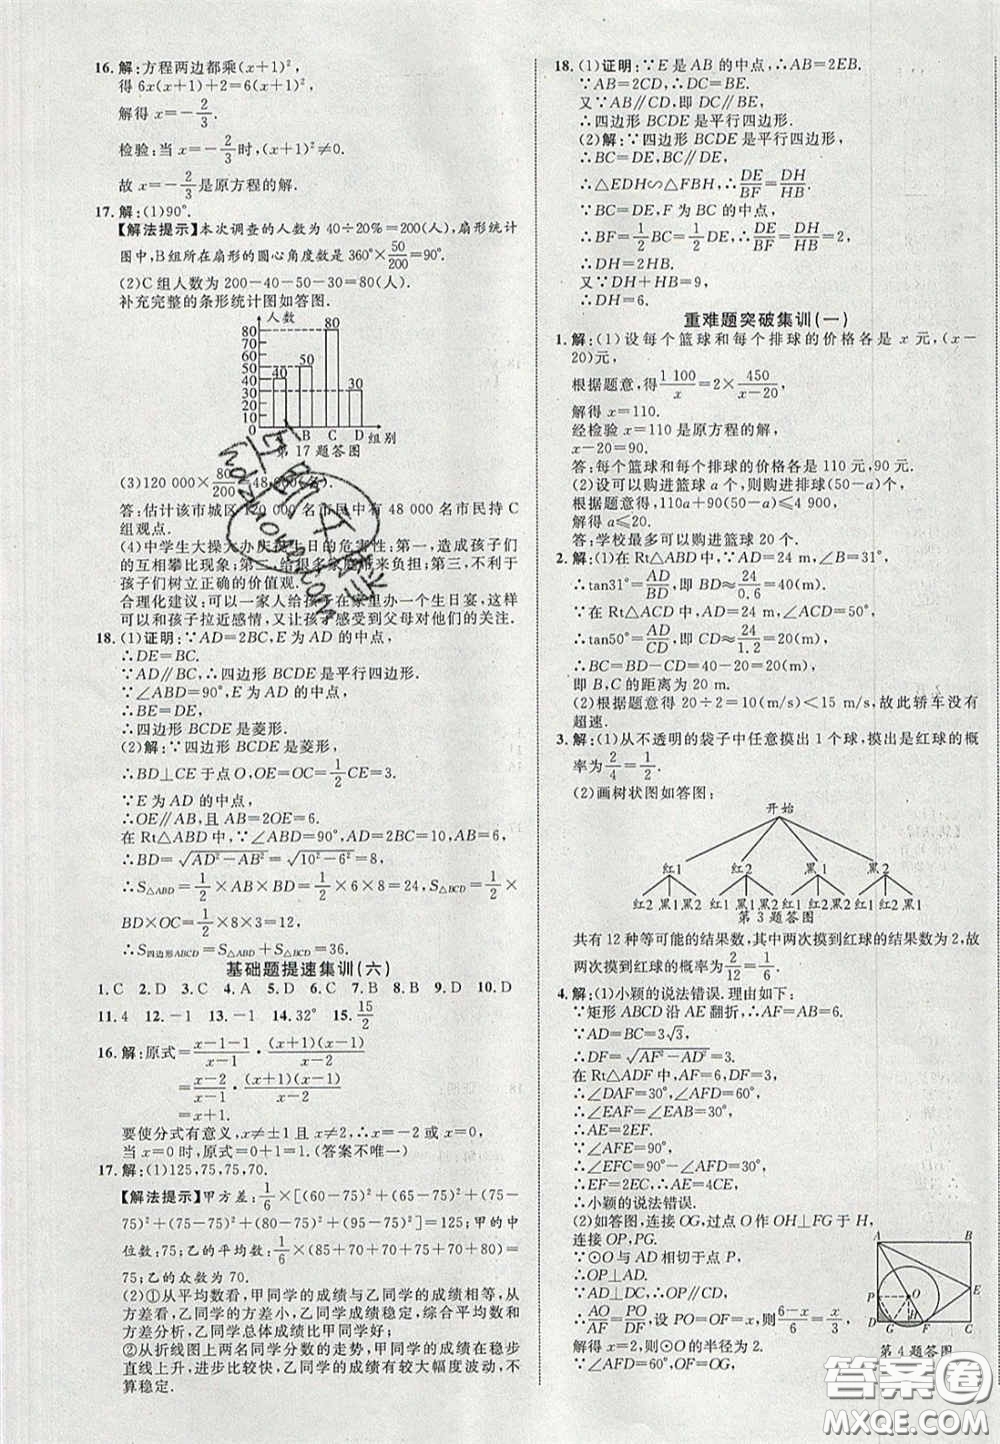 16. 解:方程两边都乘(x+1)²,
得 6x(x+1)+2=6(x+1)².
解得 x=-2/3.
检验:当 x=-2/3时,(x+1)²≠0.
故 x=-2/3是原方程的解.
17. 解:(1)90°.
【解法提示】本次调查的人数为 40÷20%=200(人),扇形统计
图中,B组所在扇形的圆心角度数是360°×50/200=90°.
(2)C 组人数为 200-40-50-30=80(人).
补充完整的条形统计图如答图.
人数
80
70
60
50
40
30
20
10
0
40
50
80
30
B C D 组别
第 17 题答图
(3)120 000×80/200=48 000(名).
答:估计该市城区 120 000 名市民中有 48 000 名市民持 C
组观点.
(4)中学生大操大办庆祝生日的危害性:第一,造成孩子们
的互相攀比现象;第二,给很多家庭带来负担;第三,不利于
孩子们树立正确的价值观.
合理化建议:可以一家人给孩子在家里办一个生日宴,这样
可以和孩子拉近感情,又让孩子感受到父母对他们的关注.
18. (1)证明:∵AD=2BC,E 为 AD 的中点,
∴DE=BC.
∵AD∥BC,∴四边形 BCDE 是平行四边形.
∵∠ABD=90°,E 为 AD 的中点,
∴BE=DE,
∴四边形 BCDE 是菱形.
(2)解:∵四边形 BCDE 是菱形,
∴BD⊥CE 于点 O,OE=OC=1/2CE=3.
∵E 为 AD 的中点,
∴OE∥AB,∴AB=2OE=6.
在 Rt△ABD 中,∵∠ABD=90°,AD=2BC=10,AB=6,
∴BD=√(AD²-AB²)=√(10²-6²)=8,
∴S△ABD=1/2×AB×BD=1/2×6×8=24,S△BCD=1/2×
BD×OC=1/2×8×3=12,
∴S四边形ABCD=S△ABD+S△BCD=36.
基础题提速集训(六)
1. C 2. D 3. C 4. A 5. D 6. C 7. B 8. B 9. D 10. D
11. 4 12. -1 13. -1 14. 32° 15. 15/2
16. 解:原式=(x-1-1)/(x-1)·(x+1)(x-1)/(x-2)
=(x-2)/(x-1)·(x+1)(x-1)/(x-2)
=x+1.
要使分式有意义,x≠±1 且 x≠2,∴x=-2 或 x=0,
当 x=0 时,原式=0+1=1.(答案不唯一)
17. 解:(1)125,75,75,70.
【解法提示】甲方差:1/6×[(60-75)²+(65-75)²+(75-
75)²+(75-75)²+(80-75)²+(95-75)²]=125;甲的中
位数:75;乙的平均数:1/6×(85+70+70+75+70+80)=
75;乙的众数为 70.
(2)①从平均数看,甲同学的成绩与乙同学的成绩相等,从
方差看,乙同学的方差小,乙同学成绩稳定,综合平均数和
方差分析,乙同学总体成绩比甲同学好;
②从折线图上两名同学分数的走势,甲同学的成绩在稳步
直线上升,进步比较快,乙同学的成绩有较大幅度波动,不
算稳定.
18. (1)证明:∵E 是 AB 的中点,∴AB=2EB.
∵AB=2CD,∴DC=BE.
又∵AB∥CD,即 DC∥BE,
∴四边形 BCDE 是平行四边形.
(2)解:∵四边形 BCDE 是平行四边形,
∴BC=DE,BC∥DE,
∴△EDH∽△FBH,∴DE/BF=DH/HB.
∵BC=DE,F 为 BC 的中点,
∴BF=1/2BC=1/2DE,∴DE/BF=DH/HB=2,
∴DH=2HB.
又∵HB=3,
∴DH=6.
重难题突破集训(一)
1. 解:(1)设每个篮球和每个排球的价格各是 x 元,(x-
20)元,
根据题意,得1 100/x=2×450/(x-20).
解得 x=110.
经检验 x=110 是原方程的解.
x-20=90.
答:每个篮球和每个排球的价格各是 110 元,90 元.
(2)设可以购进篮球 a 个,则购进排球(50-a)个.
根据题意,得110a+90(50-a)≤4 900,
解得 a≤20.
答:学校最多可以购进篮球 20 个.
2. 解:(1)在 Rt△ABD 中,∵AD=24 m,∠B=31°,
∴tan31°=AD/BD,即 BD=24/0.6=40(m).
∵在 Rt△ACD 中,AD=24 m,∠ACD=50°,
∴tan50°=AD/CD,即 CD=24/1.2=20(m),
∴BC=BD-CD=40-20=20(m),
即 B,C 的距离为 20 m.
(2)根据题意得 20÷2=10(m/s)<15 m/s,故此轿车没有
超速.
3. 解:(1)从不透明的袋子中任意摸出 1 个球,摸出是红球的概
率为2/4=1/2.
(2)画树状图如答图:
开始
红1 红2 黑1 黑2
红2 黑1 黑2 红1 黑1 黑2 红1 红2 黑2 红1 红2 黑1
第 3 题答图
共有 12 种等可能的结果数,其中两次摸到红球的结果数为 2,故
两次摸到红球的概率为2/12=1/6.
4. 解:(1)小颖的说法错误.理由如下:
∵矩形 ABCD 沿 AE 翻折,∴AF=AB=6.
∵AD=BC=3√3,
∴DF=√(AF²-AD²)=3.
在 Rt△ADF 中,AF=6,DF=3,
∴∠DAF=30°,∠AFD=60°,
∴∠EAF=∠EAB=30°,
∴AE=2EF.
∵∠AFE=90°,
∴∠EFC=90°-∠AFD=30°,
∴小颖的说法错误.
(2)如答图,连接 OG,过点 O 作 OH⊥FG 于 H,
连接 OP.
∵⊙O 与 AD 相切于点 P,
∴OP⊥AD.
∵AD⊥DC,∴OP∥DC,
∴AO/AF=PO/DF.设 OP=OF=x,则(6-x)/6=x/3,
解得 x=2,即⊙O 的半径为 2.
∵∠AFD=60°,OF=OG,
A B
P O E
D G F C
第 4 题答图
答案圈
MXQE.COM